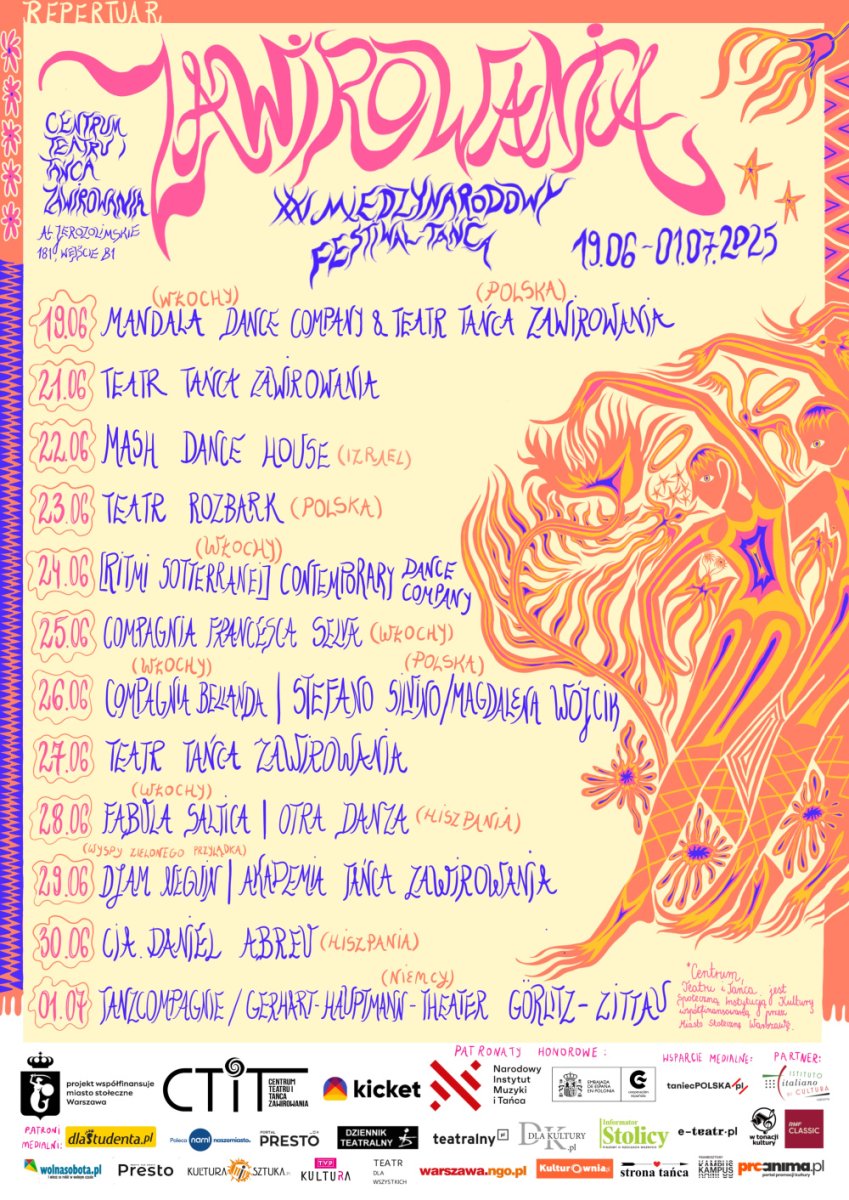 REPERTUAR
ZAWIROWANIA
CENTRUM
TEATRU I
TAŃCA
ZAWIROWANIA
AL. JEROZOLIMSKIE
181B, WEJŚCIE B1
XXI MIĘDZYNARODOWY
FESTIWAL TAŃCA
19.06-01.07.2025
(WŁOCHY) (POLSKA)
19.06 MANDALA DANCE COMPANY & TEATR TAŃCA ZAWIROWANIA
21.06 TEATR TAŃCA ZAWIROWANIA
22.06 MASH DANCE HOUSE (IZRAEL)
23.06 TEATR ROZBARK (POLSKA)
(WŁOCHY)
24.06 [RITMI SOTTERRANEI] CONTEMPORARY DANCE COMPANY
25.06 COMPAGNIA FRANCESCA SELVA (WŁOCHY)
(WŁOCHY) (POLSKA)
26.06 COMPAGNIA BELLANDA | STEFANO SILVINO/MAGDALENA WÓJCIK
27.06 TEATR TAŃCA ZAWIROWANIA
(WŁOCHY)
28.06 FABULA SALTICA | OTRA DANZA (HISZPANIA)
(WYSPY ZIELONEGO PRZYLĄDKA)
29.06 DJAM NEGUIN | AKADEMIA TAŃCA ZAWIROWANIA
30.06 CIA. DANIEL ABREU (HISZPANIA)
(NIEMCY)
01.07 TANZCOMPAGNIE / GERHART-HAUPTMANN-THEATER GÖRLITZ-ZITTAU
*Centrum
Teatru i Tańca jest
Społeczną Instytucją Kultury
współfinansowaną przez
Miasto Stołeczne Warszawę.
projekt współfinansuje
miasto stołeczne
Warszawa
CTiT
CENTRUM
TEATRU I
TAŃCA
ZAWIROWANIA
kicket
PATRONATY HONOROWE:
Narodowy
Instytut
Muzyki
i Tańca
EMBAJADA
DE ESPAÑA
EN POLONIA
WSPARCIE MEDIALNE:
taniecPOLSKA.pl
PARTNER:
ISTITUTO
italiano
DI CULTURA
PATRONI
MEDIALNI:
dlaStudenta.pl
Poleca nami naszemiasto.
PORTAL
PRESTO
DZIENNIK
TEATRALNY
teatralny.pl
DLA KULTURY
.pl
Informator
Stolicy
e-teatr.pl
w tonacji
kultury
RMF
CLASSIC
wolnasobota.pl
Presto
KULTURA SZTUKA
TVP
KULTURA
TEATR
DLA
WSZYSTKICH
warszawa.ngo.pl
KulturOwnia.pl
strona tańca
KAMPUS
KAMPUS
proanima.pl